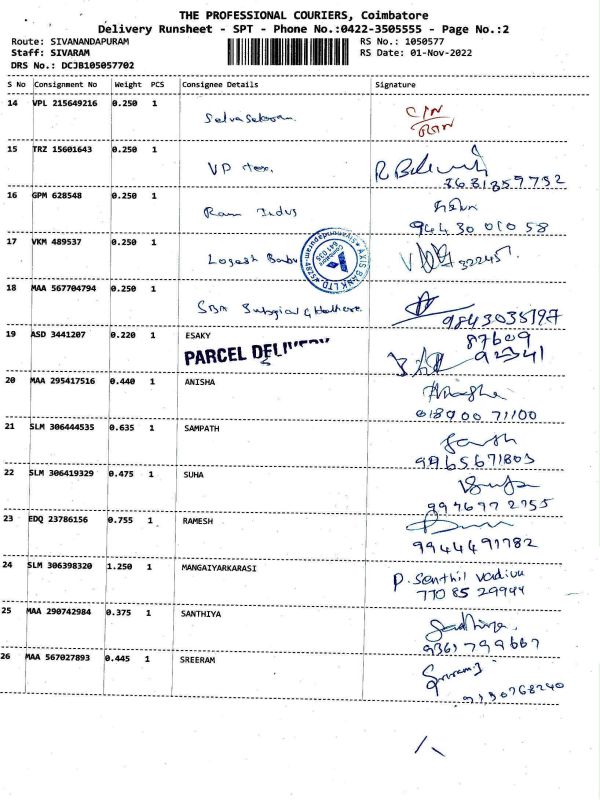 THE PROFESSIONAL COURIERS, Coimbatore
Delivery Runsheet - SPT - Phone No.:0422-3505555 - Page No.:2
Route: SIVANANDAPURAM RS No.: 1050577
Staff: SIVARAM RS Date: 01-Nov-2022
DRS No.: DCJB105057702
S No Consignment No Weight PCS Consignee Details Signature
14 VPL 215649216 0.250 1
15 TRZ 15601643 0.250 1 VP tex.
16 GPM 628548 0.250 1 Ram Indus
94430 01058
17 VKM 489537 0.250 1 Logesh Babu
AXIS BANK LTD
18 MAA 567704794 0.250 1 SBA
9843035197
19 ASD 3441207 0.220 1 ESAKY 87609
PARCEL DELIVERY 92341
20 MAA 295417516 0.440 1 ANISHA
71100
21 SLM 306444535 0.635 1 SAMPATH
9865671803
22 SLM 306419329 0.475 1 SUHA
23 EDQ 23786156 0.755 1 RAMESH
9944491782
24 SLM 306398320 1.250 1 MANGAIYARKARASI P. Senthil vadivu
77085 29944
25 MAA 290742984 0.375 1 SANTHIYA
26 MAA 567027893 0.445 1 SREERAM